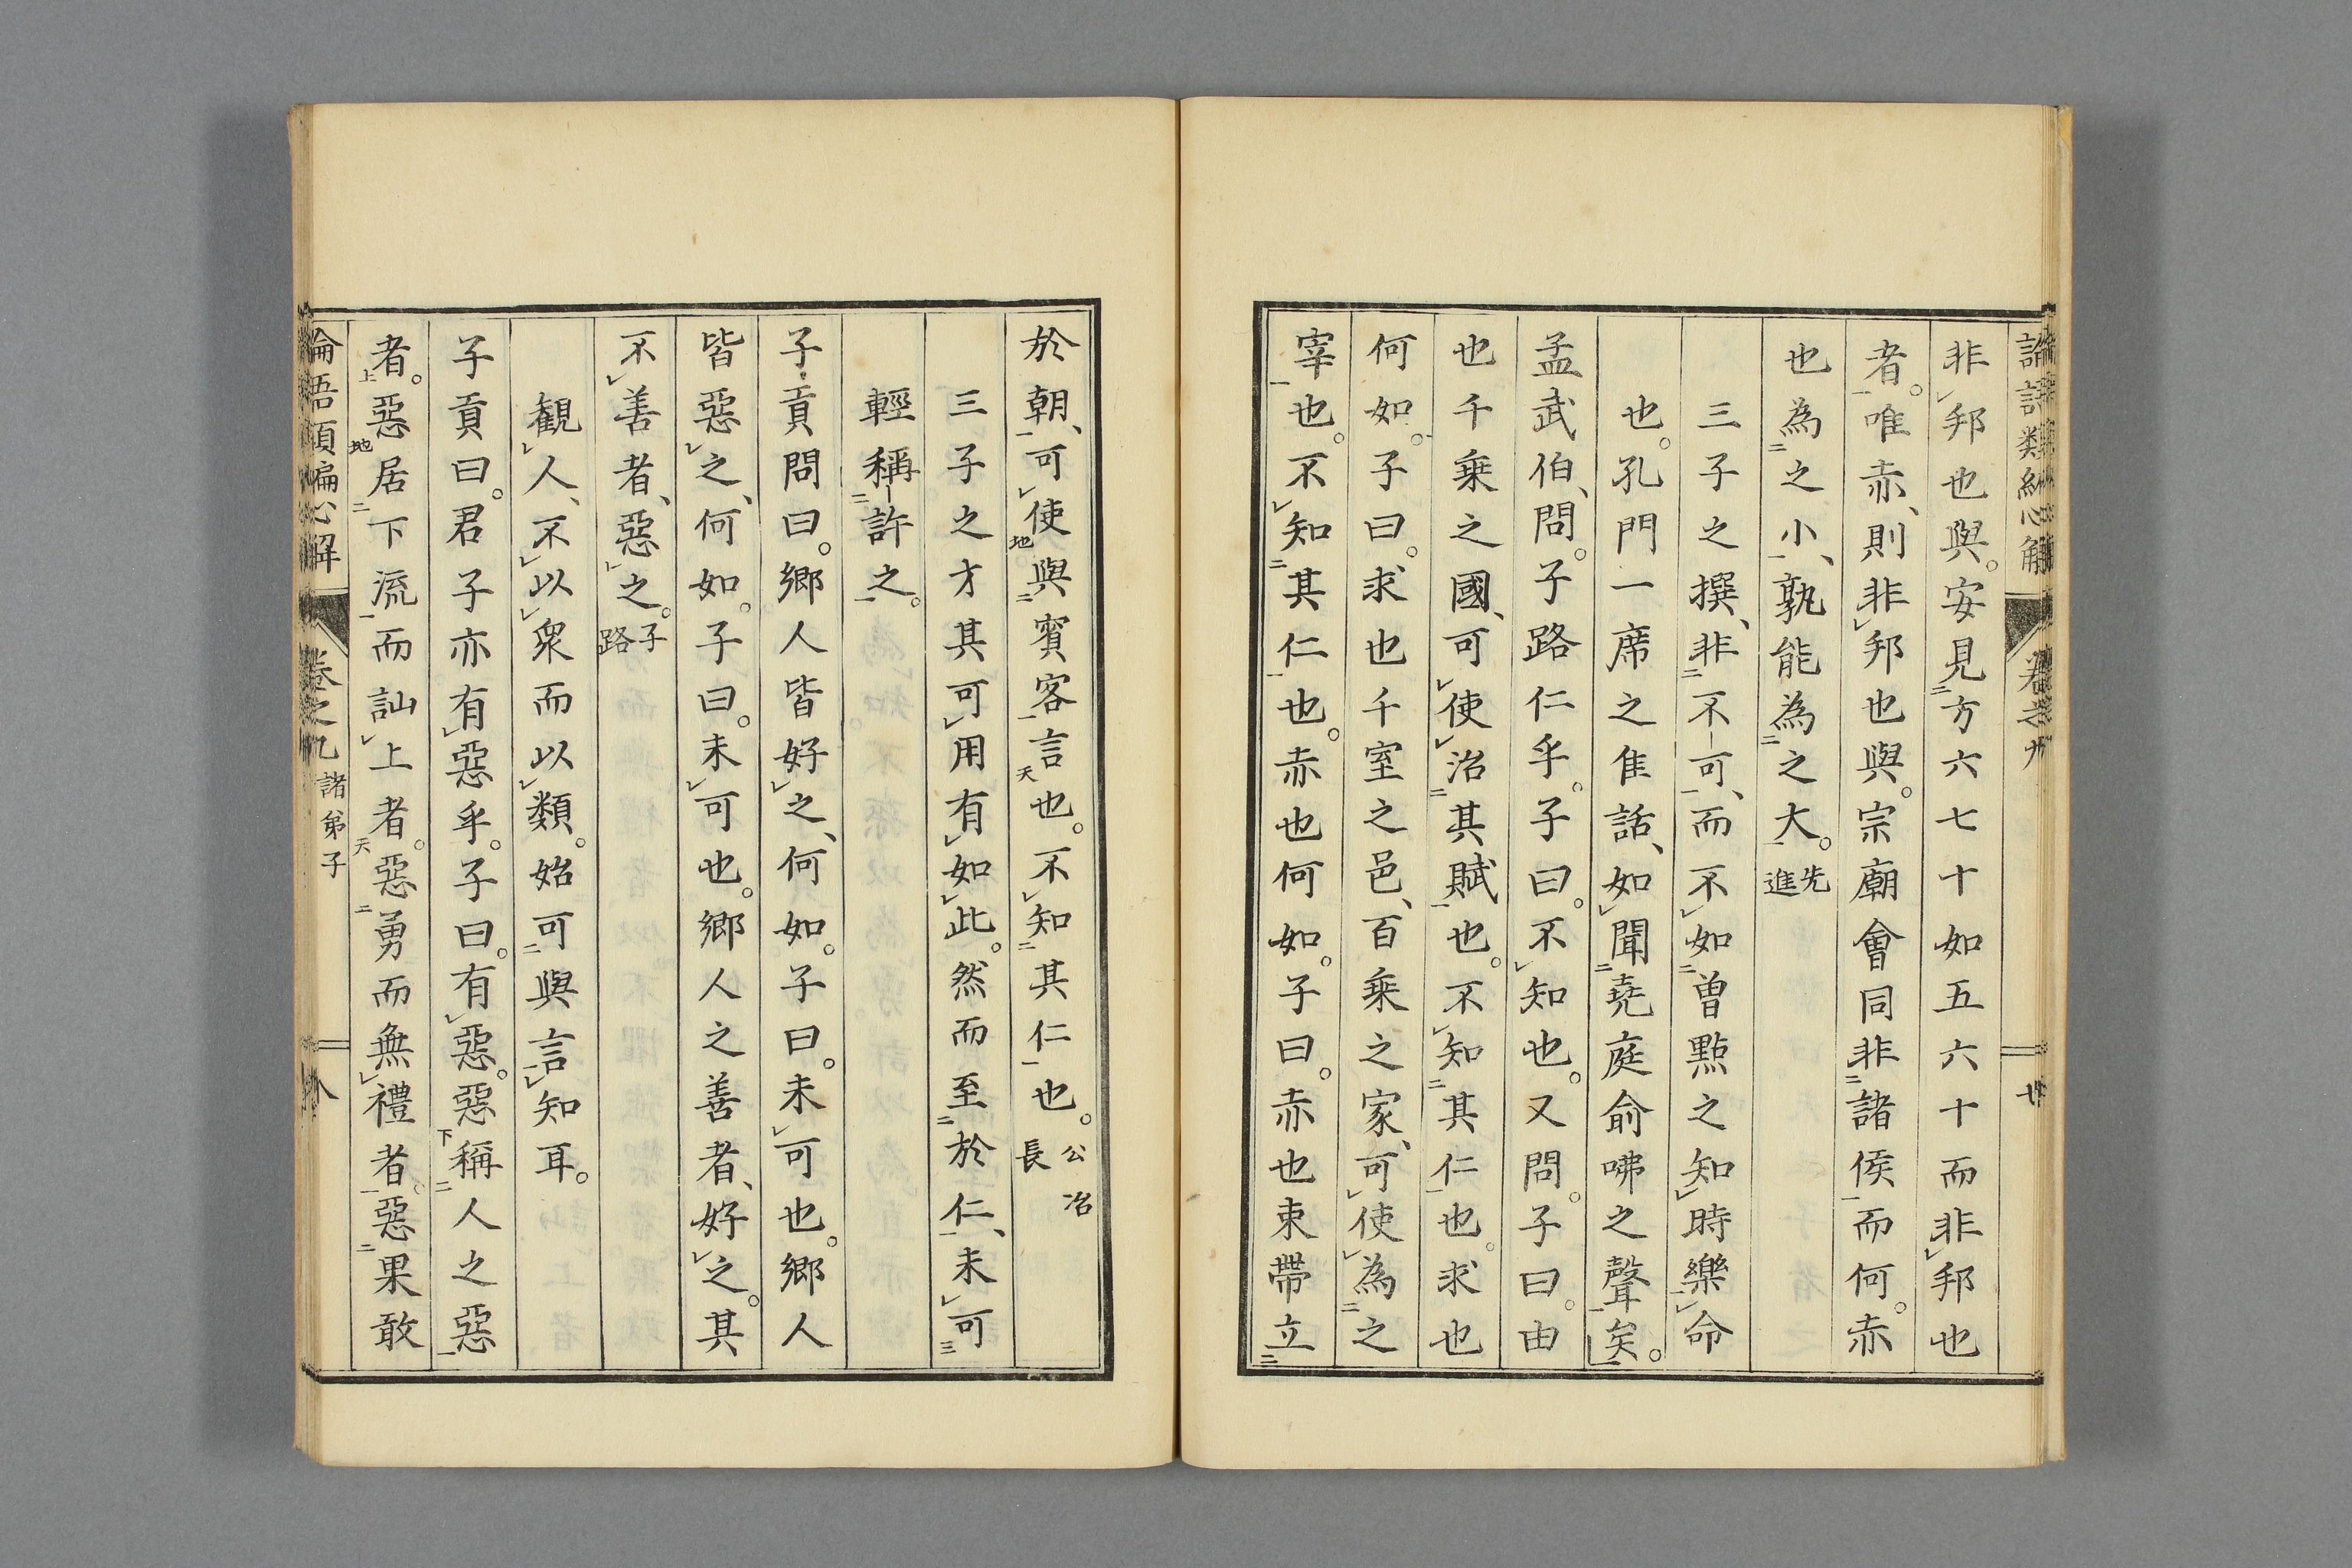 非邦也與。安見方六七十如五六十而非邦也
者。唯赤、則非邦也與。宗廟會同非諸侯而何。赤
也為之小、孰能為之大。先進
三子之撰、非不可、而不如曽點之知時樂命
也。孔門一席之隹話、如聞堯庭俞咈之聲矣。
孟武伯、問。子路仁乎。子曰。不知也。又問。子曰。由
也千乗之國、可使治其賦也。不知其仁也。求也
何如。子曰。求也千室之邑、百乗之家、可使為之
宰也。不知其仁也。赤也何如。子曰。赤也束帶立
於朝、可使與賓客言也。不知其仁也。公冶長
三子之才其可用有如此。然而至於仁、未可
輕稱許之。
子貢問曰。鄉人皆好之、何如。子曰。未可也。鄉人
皆惡之、何如。子曰。未可也。鄉人之善者、好之。其
不善者、惡之。子路
観人、不以衆而以類。始可與言知耳。
子貢曰。君子亦有惡乎。子曰。有惡。惡稱人之惡
者。惡居下流而訕上者。惡勇而無禮者。惡果敢
卷之九 諸弟子 八